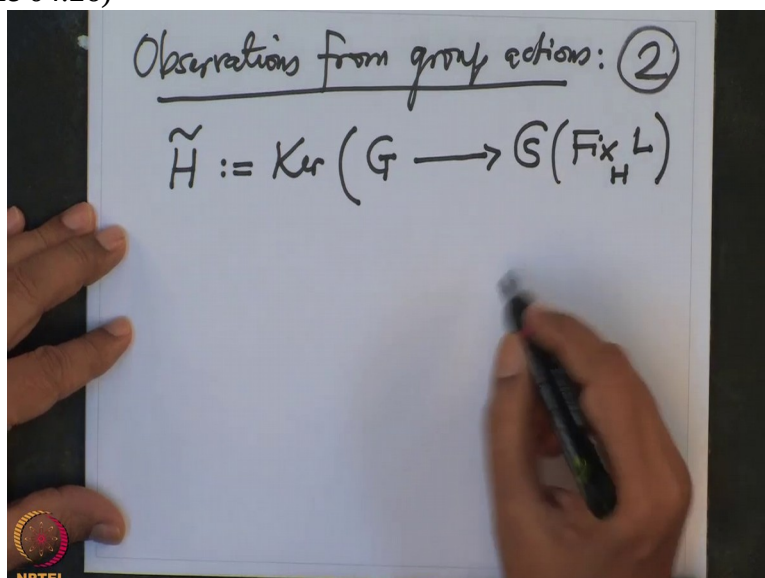 Observations from group actions: ②
H̃ := Ker ( G ⟶ 𝔖(Fix_H L)
NPTEL